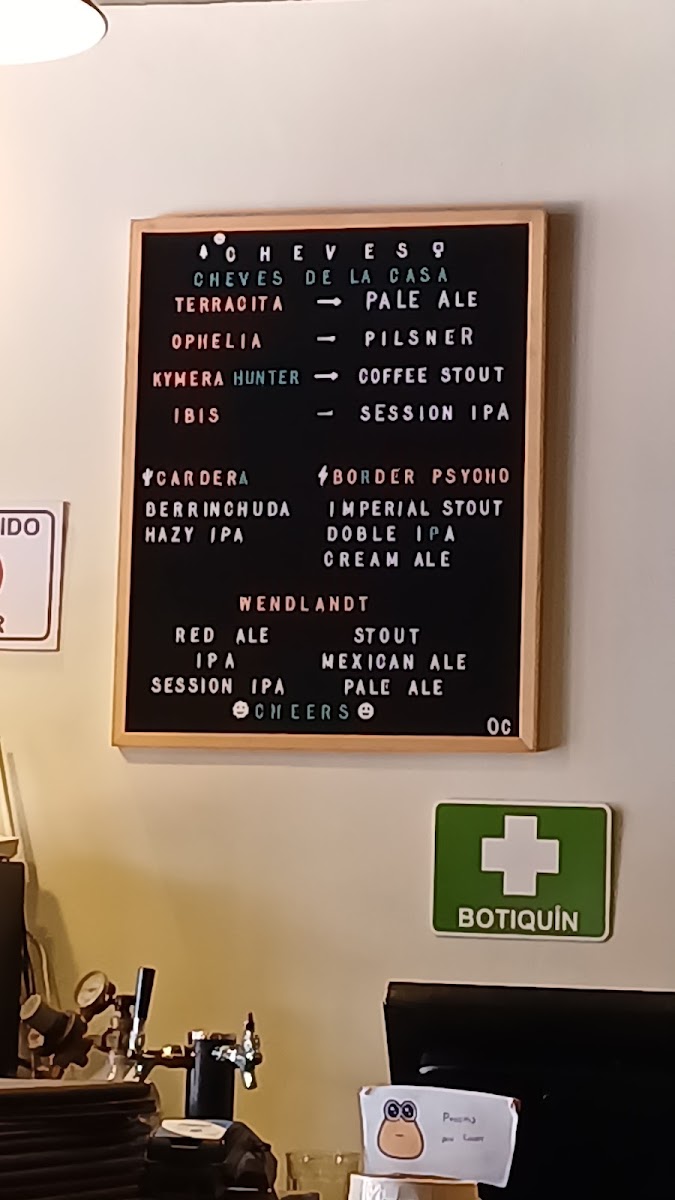 CHEVES
CHEVES DE LA CASA
TERRACITA → PALE ALE
OPHELIA → PILSNER
KYMERA HUNTER → COFFEE STOUT
IBIS - SESSION IPA
CARDERA
BERRINCHUDA
HAZY IPA
BORDER PSYCHO
IMPERIAL STOUT
DOBLE IPA
CREAM ALE
WENDLANDT
RED ALE
IPA
SESSION IPA
STOUT
MEXICAN ALE
PALE ALE
CHEERS
OC
IDO
R
BOTIQUÍN